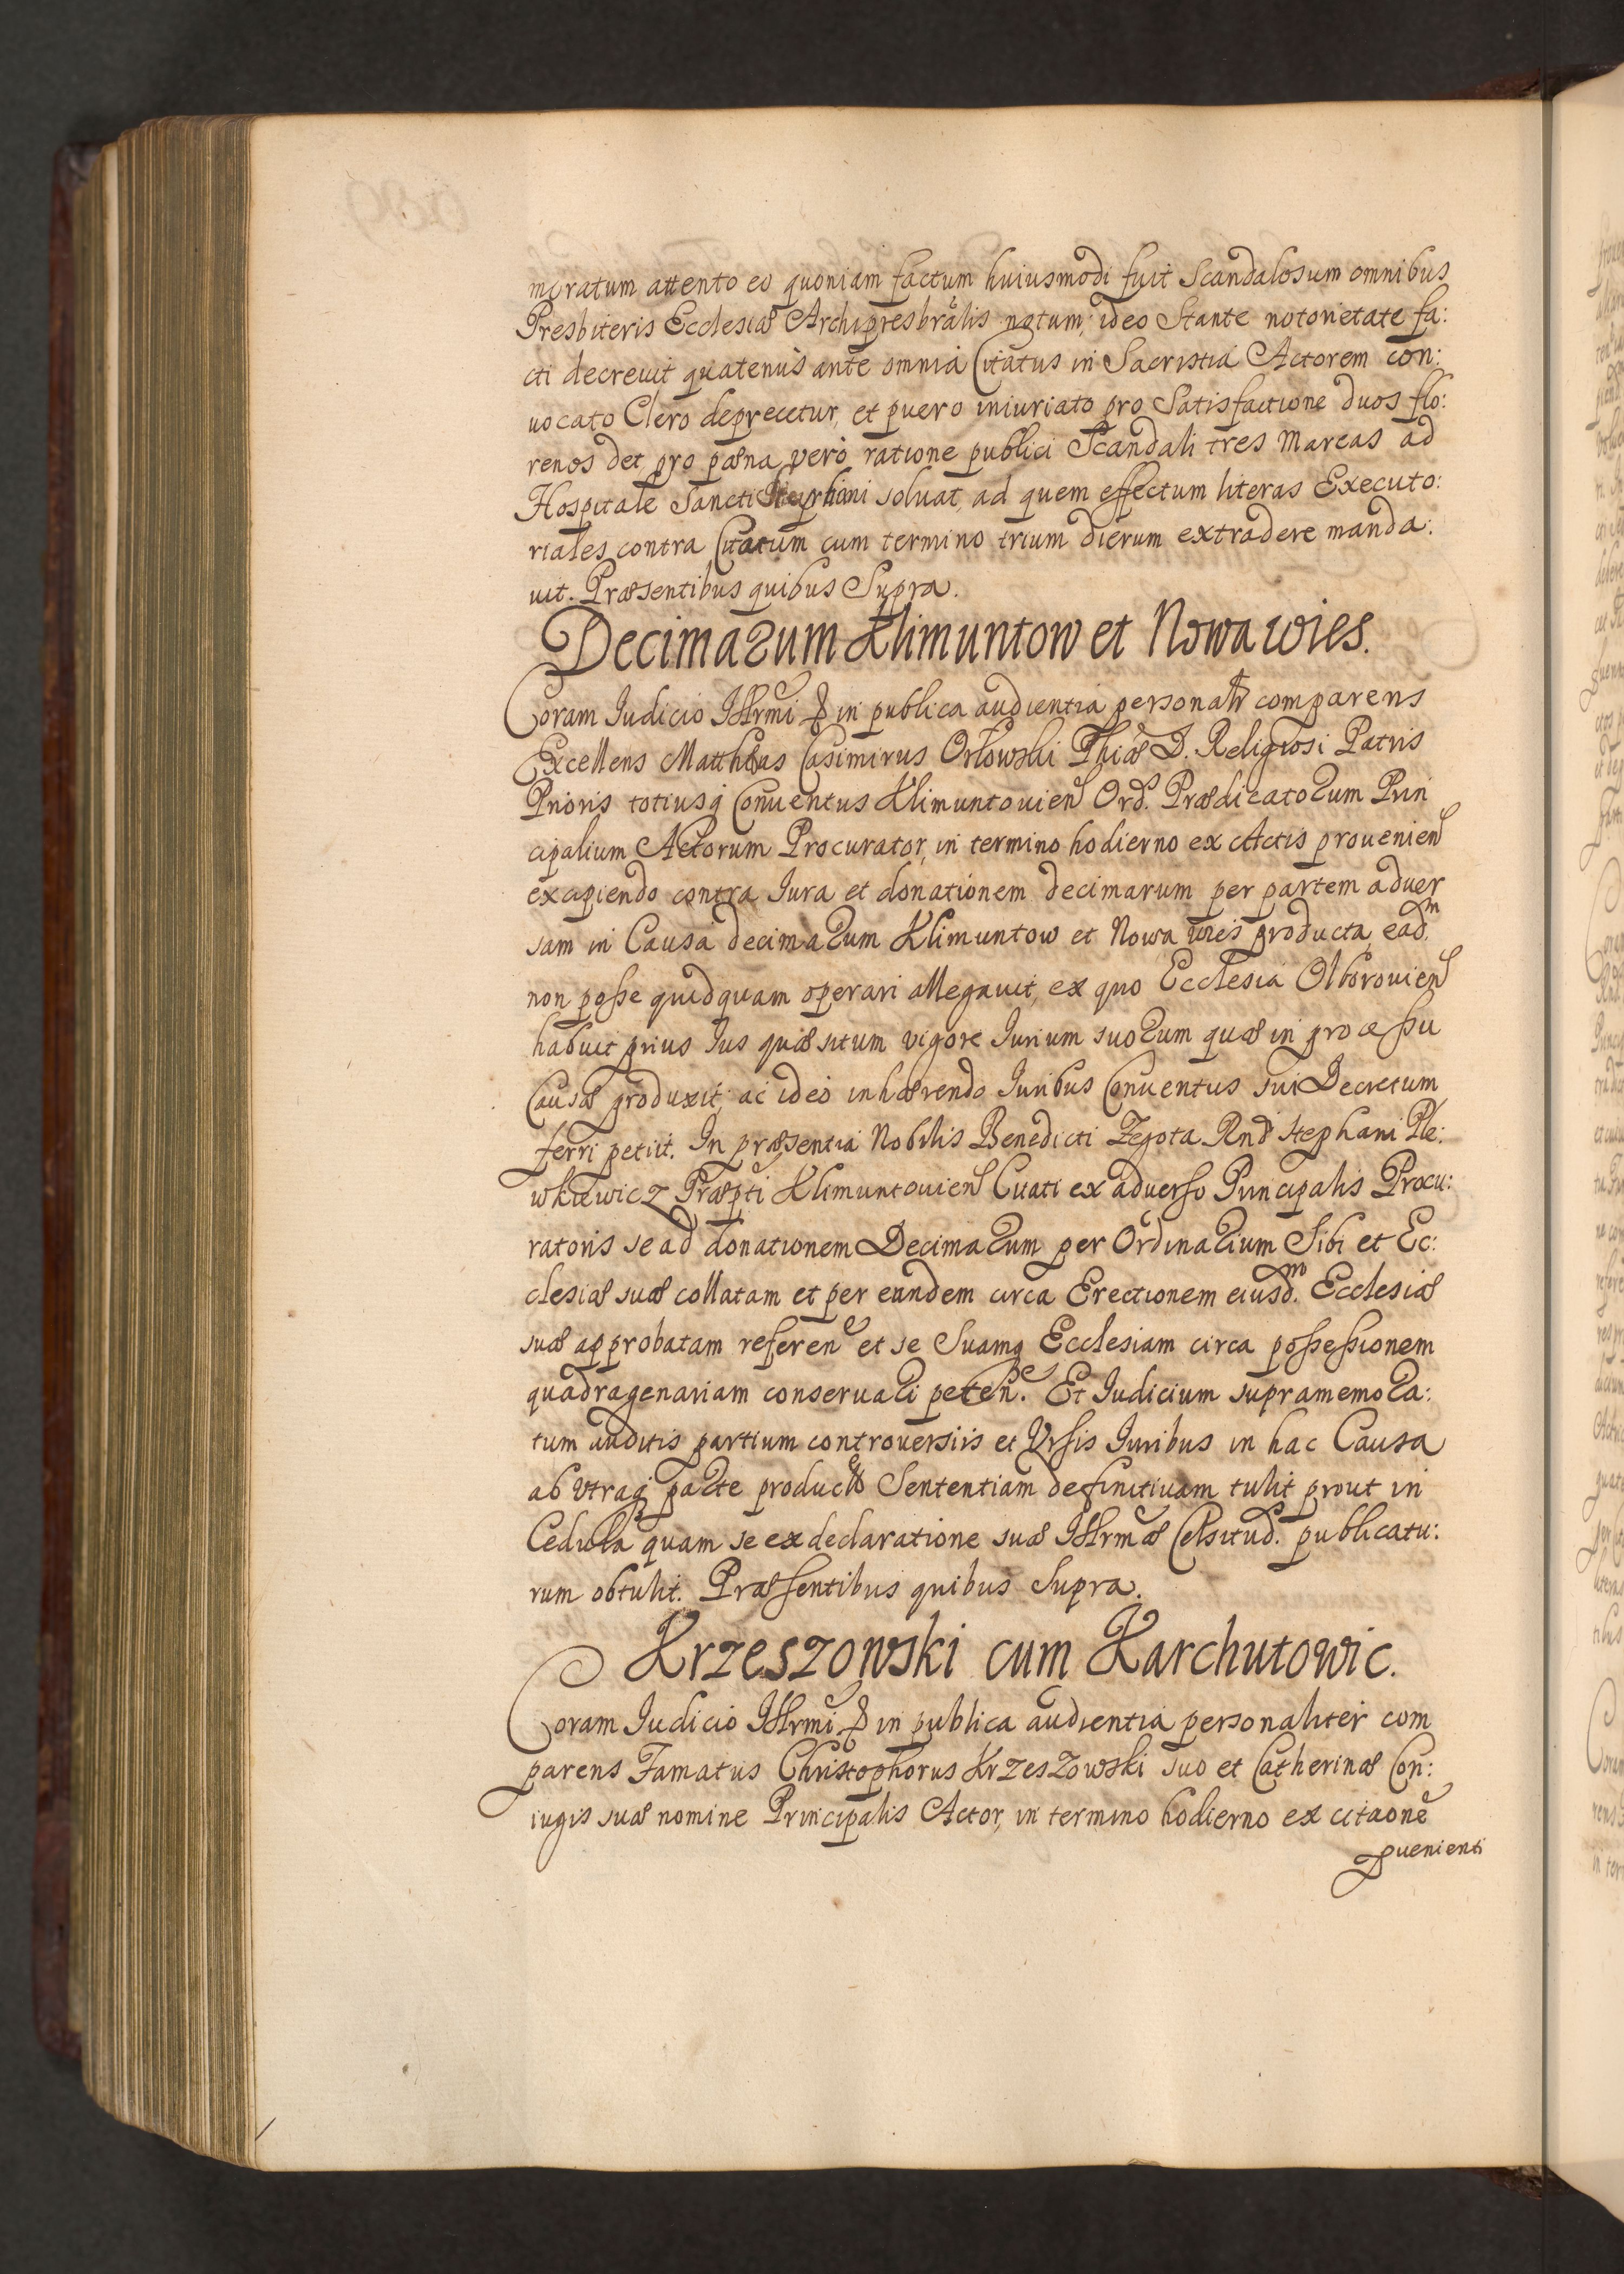 moratum attento eo quoniam factum huiusmodi fuit Scandalosum omnibus
Presbiteris Ecclesiæ Archipresbrãlis notum, ideo Stante notorietate fa:
cti decreuit quatenus ante omnia Citatus in Sacristia Actorem con:
uocato Clero deprecetur, et puero iniuriato pro Satisfactione duos flo:
renos det, pro pæna vero ratione publici Scandali tres Marcas ad
Hospitale Sancti Stephani soluat, ad quem effectum literas Executo:
riales contra Citatum cum termino trium dierum extradere manda:
uit. Præsentibus quibus Supra.
Decimarum Klimuntow et Nowawies.
Coram Iudicio Illrmi & in publica audientia personalr comparens
Excellens Matthias Casimirus Orłowski Phiæ D. Religiosi Patris
Prioris totiusq Conuentus Klimuntouien Ord. Prædicatorum Prin
cipalium Actorum Procurator, in termino hodierno ex Actis prouenien
excipiendo contra Iura et donationem decimarum per partem aduer
sam in Causa decimarum Klimuntow et Nowa wies producta, eadm
non posse quidquam operari allegauit, ex quo Ecclesia Olborouien
habuit prius Ius quæsitum vigore Iurium suorum quæ in processu
Causæ produxit; ac ideo inhærendo Iuribus Conuentus sui Decretum
ferri petiit. In præsentia Nobilis Benedicti Zegota Rndi Stephani Ple:
wkiewicz Præpti Klimuntouien Citati ex aduerso Principalis Procu:
ratoris se ad donationem Decimarum per Ordinarium Sibi et Ec:
clesiæ suæ collatam et per eundem circa Erectionem eiusdm. Ecclesiæ
suæ approbatam referen et se Suamq Ecclesiam circa possessionem
quadragenariam conseruari peten. Et Iudicium supramemora:
tum auditis partium controuersiis et Visis Iuribus in hac Causa
ab vtraq parte productis Sententiam definitiuam tulit prout in
Cedula quam se ex declaratione suæ Illrmæ Celsitud. publicatu:
rum obtulit. Præsentibus quibus Supra.
Krzeszowski cum Karchutowic.
Coram Iudicio Illrmi & in publica audientia personaliter com
parens Famatus Christophorus Krzeszowski suo et Catherinæ Con:
iugis suæ nomine Principalis Actor, in termino hodierno ex citaone
puenienti